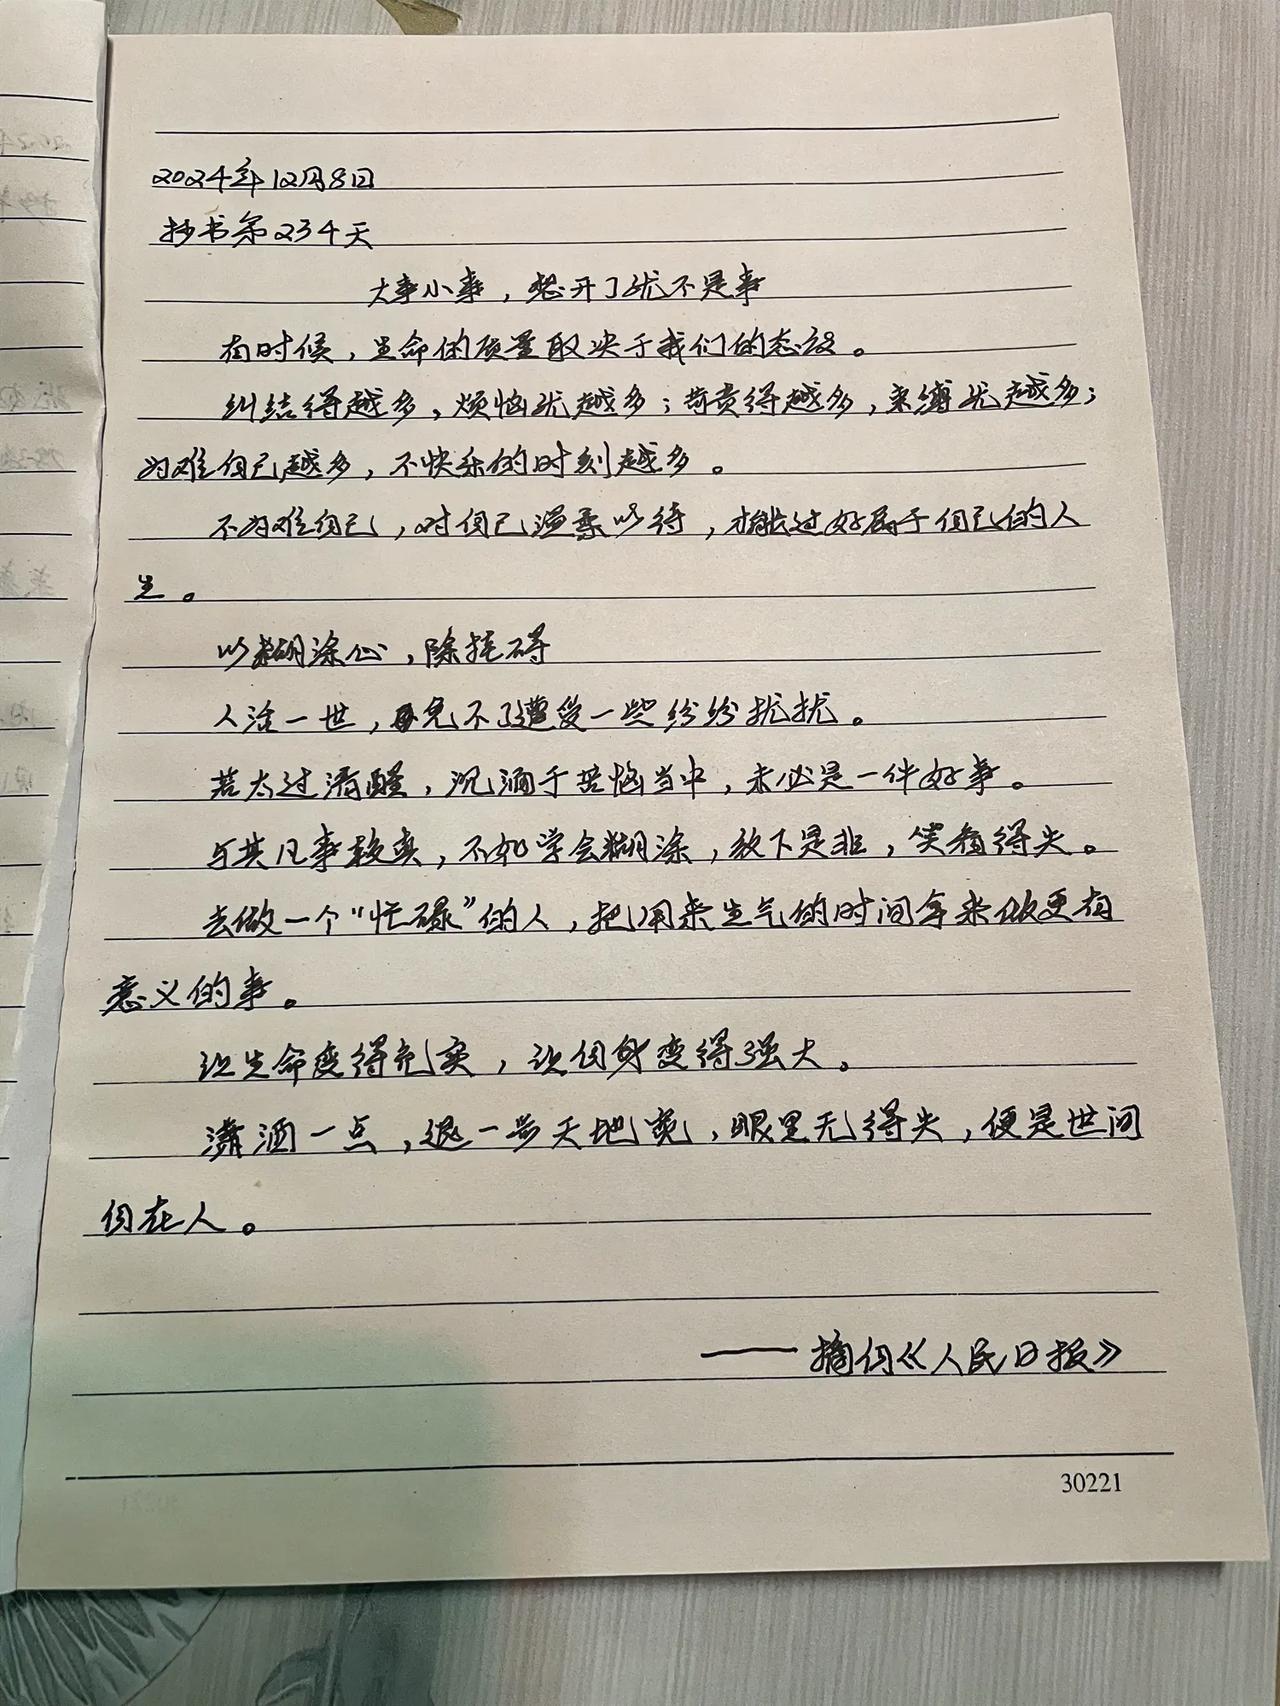 2024年12月8日
抄书第234天
大事小事，想开了就不是事
有时候，生命的质量取决于我们的态度。
纠结得越多，烦恼就越多；苛责得越多，束缚就越多；
为难自己越多，不快乐的时刻越多。
不为难自己，对自己温柔以待，才能过好属于自己的人
生。
以糊涂心，除挂碍
人活一世，免不了遭受一些纷纷扰扰。
若太过清醒，沉湎于苦恼当中，未必是一件好事。
与其凡事较真，不如学会糊涂，放下是非，笑看得失。
去做一个“忙碌”的人，把用来生气的时间拿来做更有
意义的事。
让生命变得充实，让自身变得强大。
潇洒一点，退一步天地宽，眼里无得失，便是世间
自在人。
——摘自《人民日报》
30221